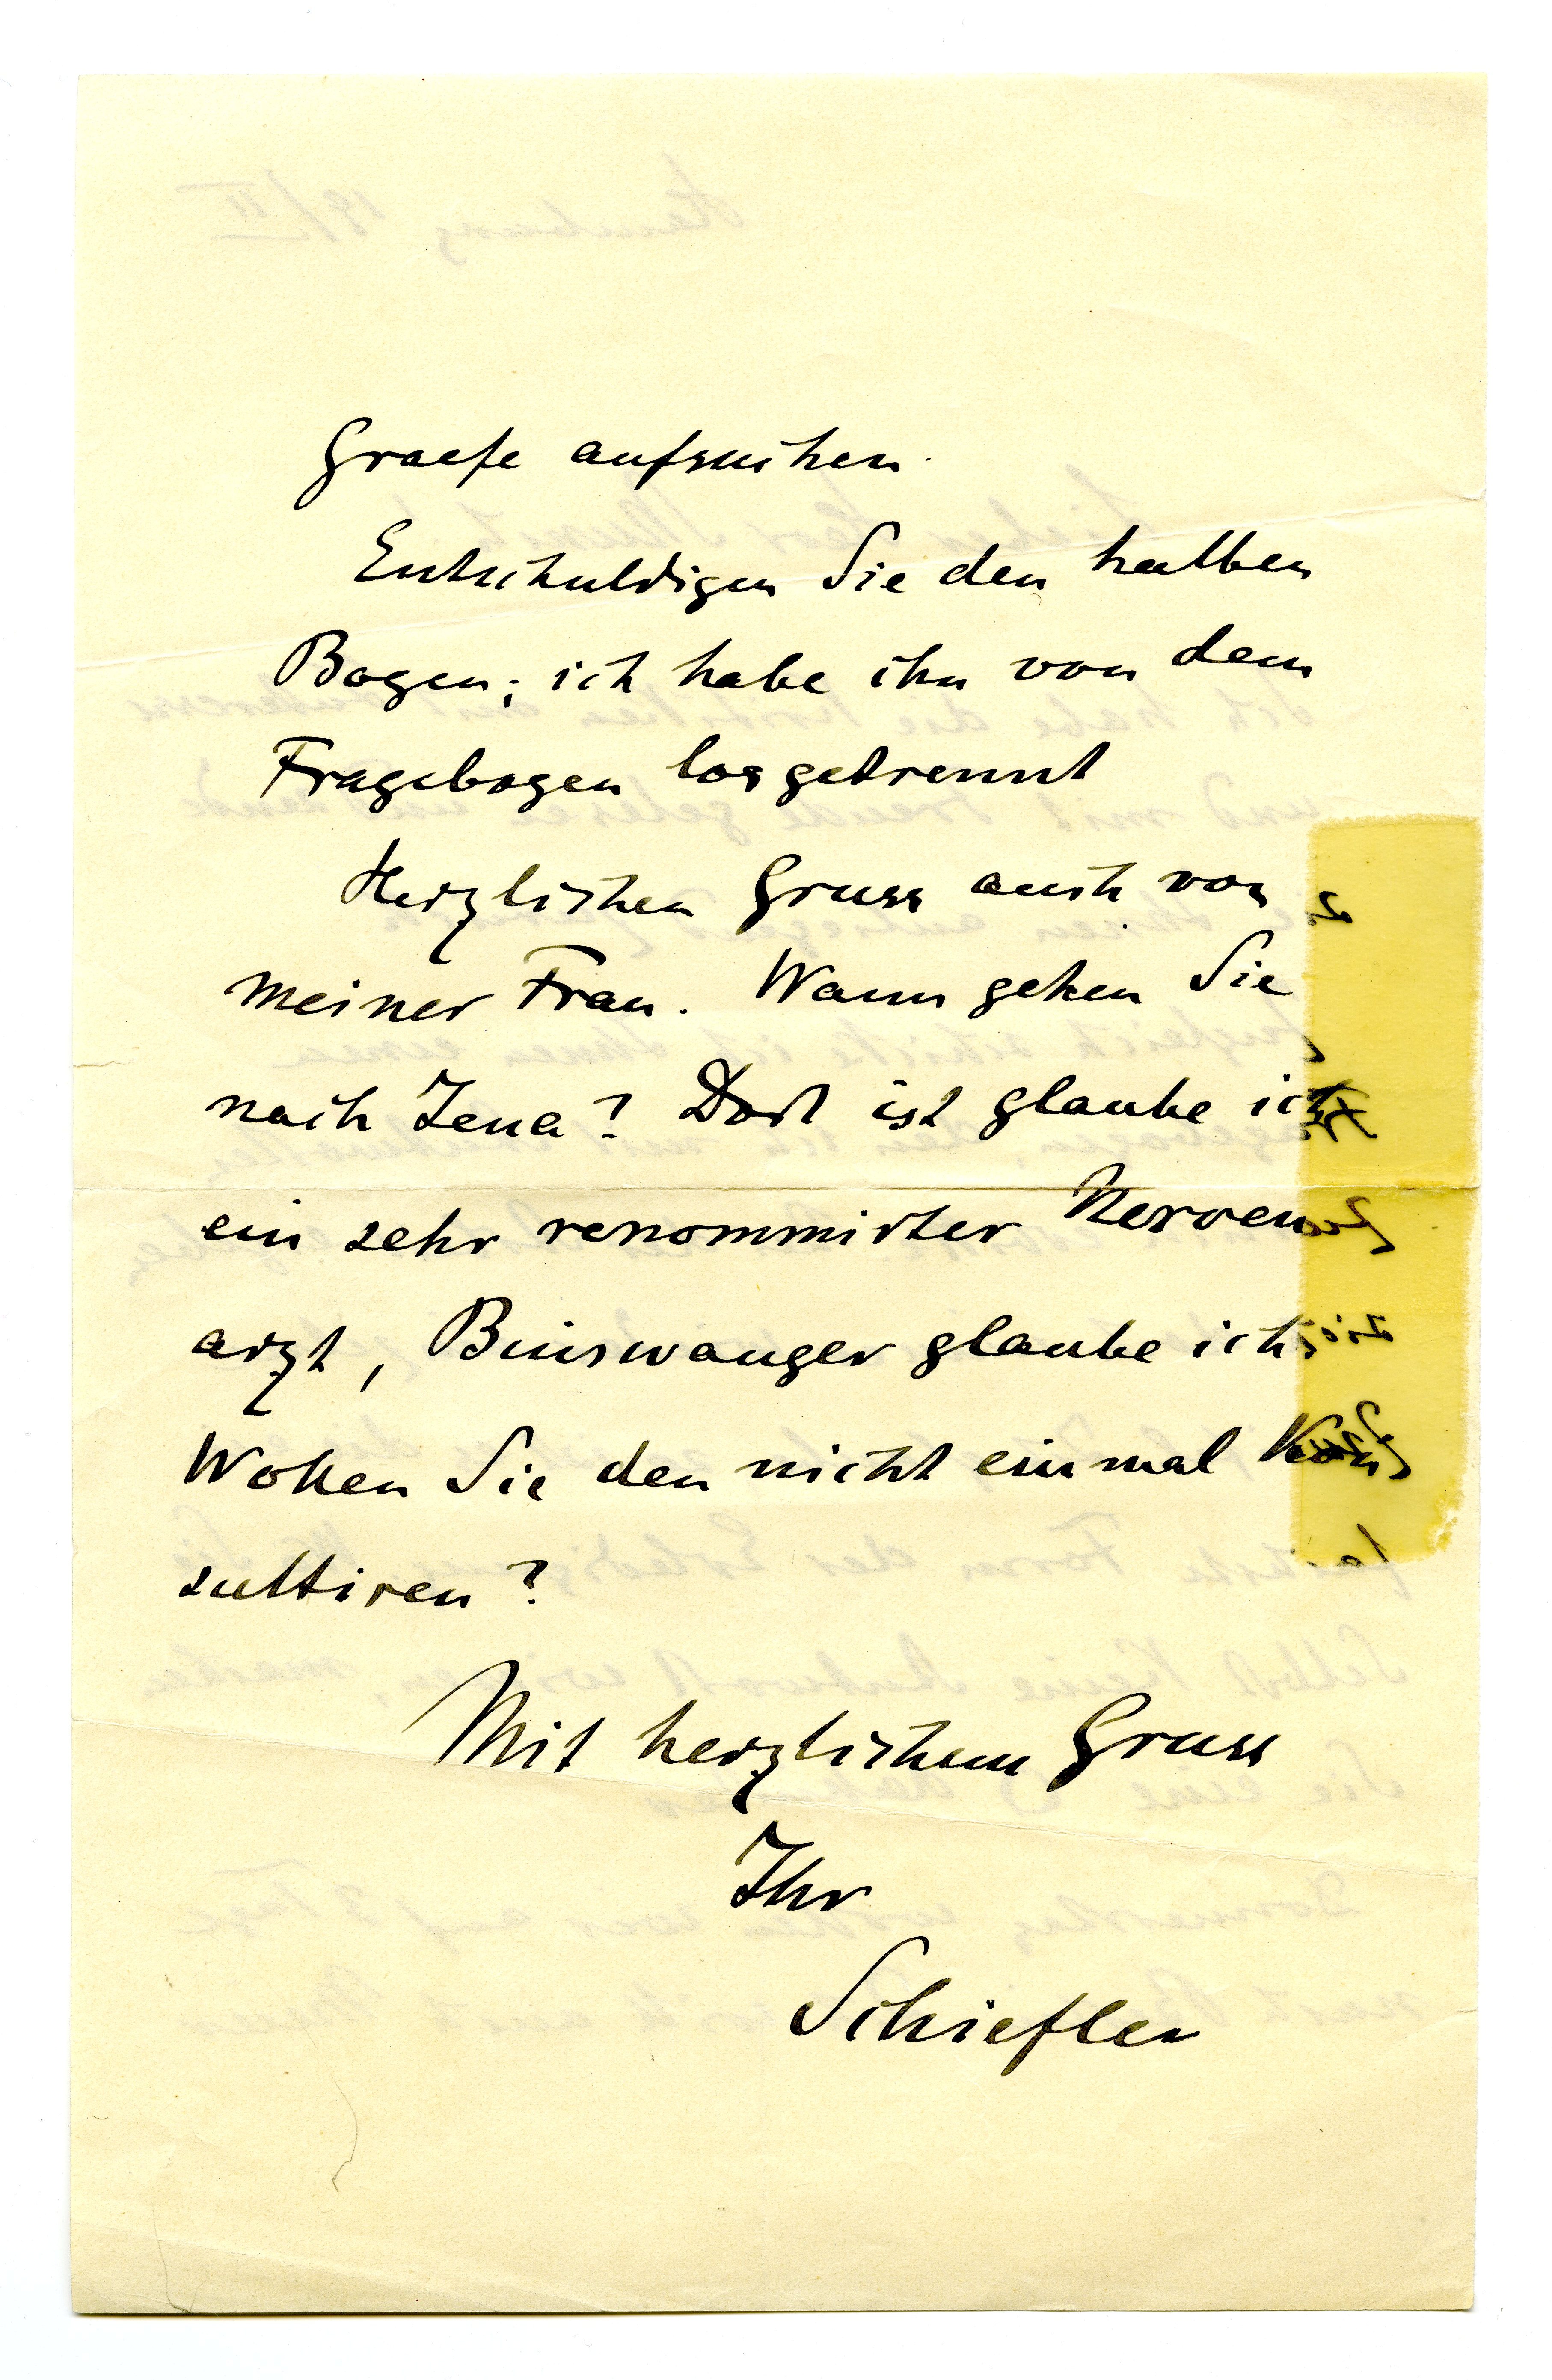 Graefe aufsuchen.
Entschuldigen Sie den halben
Bogen; ich habe ihn von dem
Fragebogen losgetrennt
Herzlichen Gruss auch von
meiner Frau. Wann gehen Sie
nach Jena? Dort ist glaube ich
ein sehr renommirter Nerven
arzt, Binswanger glaube ich
Wollen Sie den nicht einmal kon
sultiren?
Mit herzlichem Gruss
Ihr
Schiefler